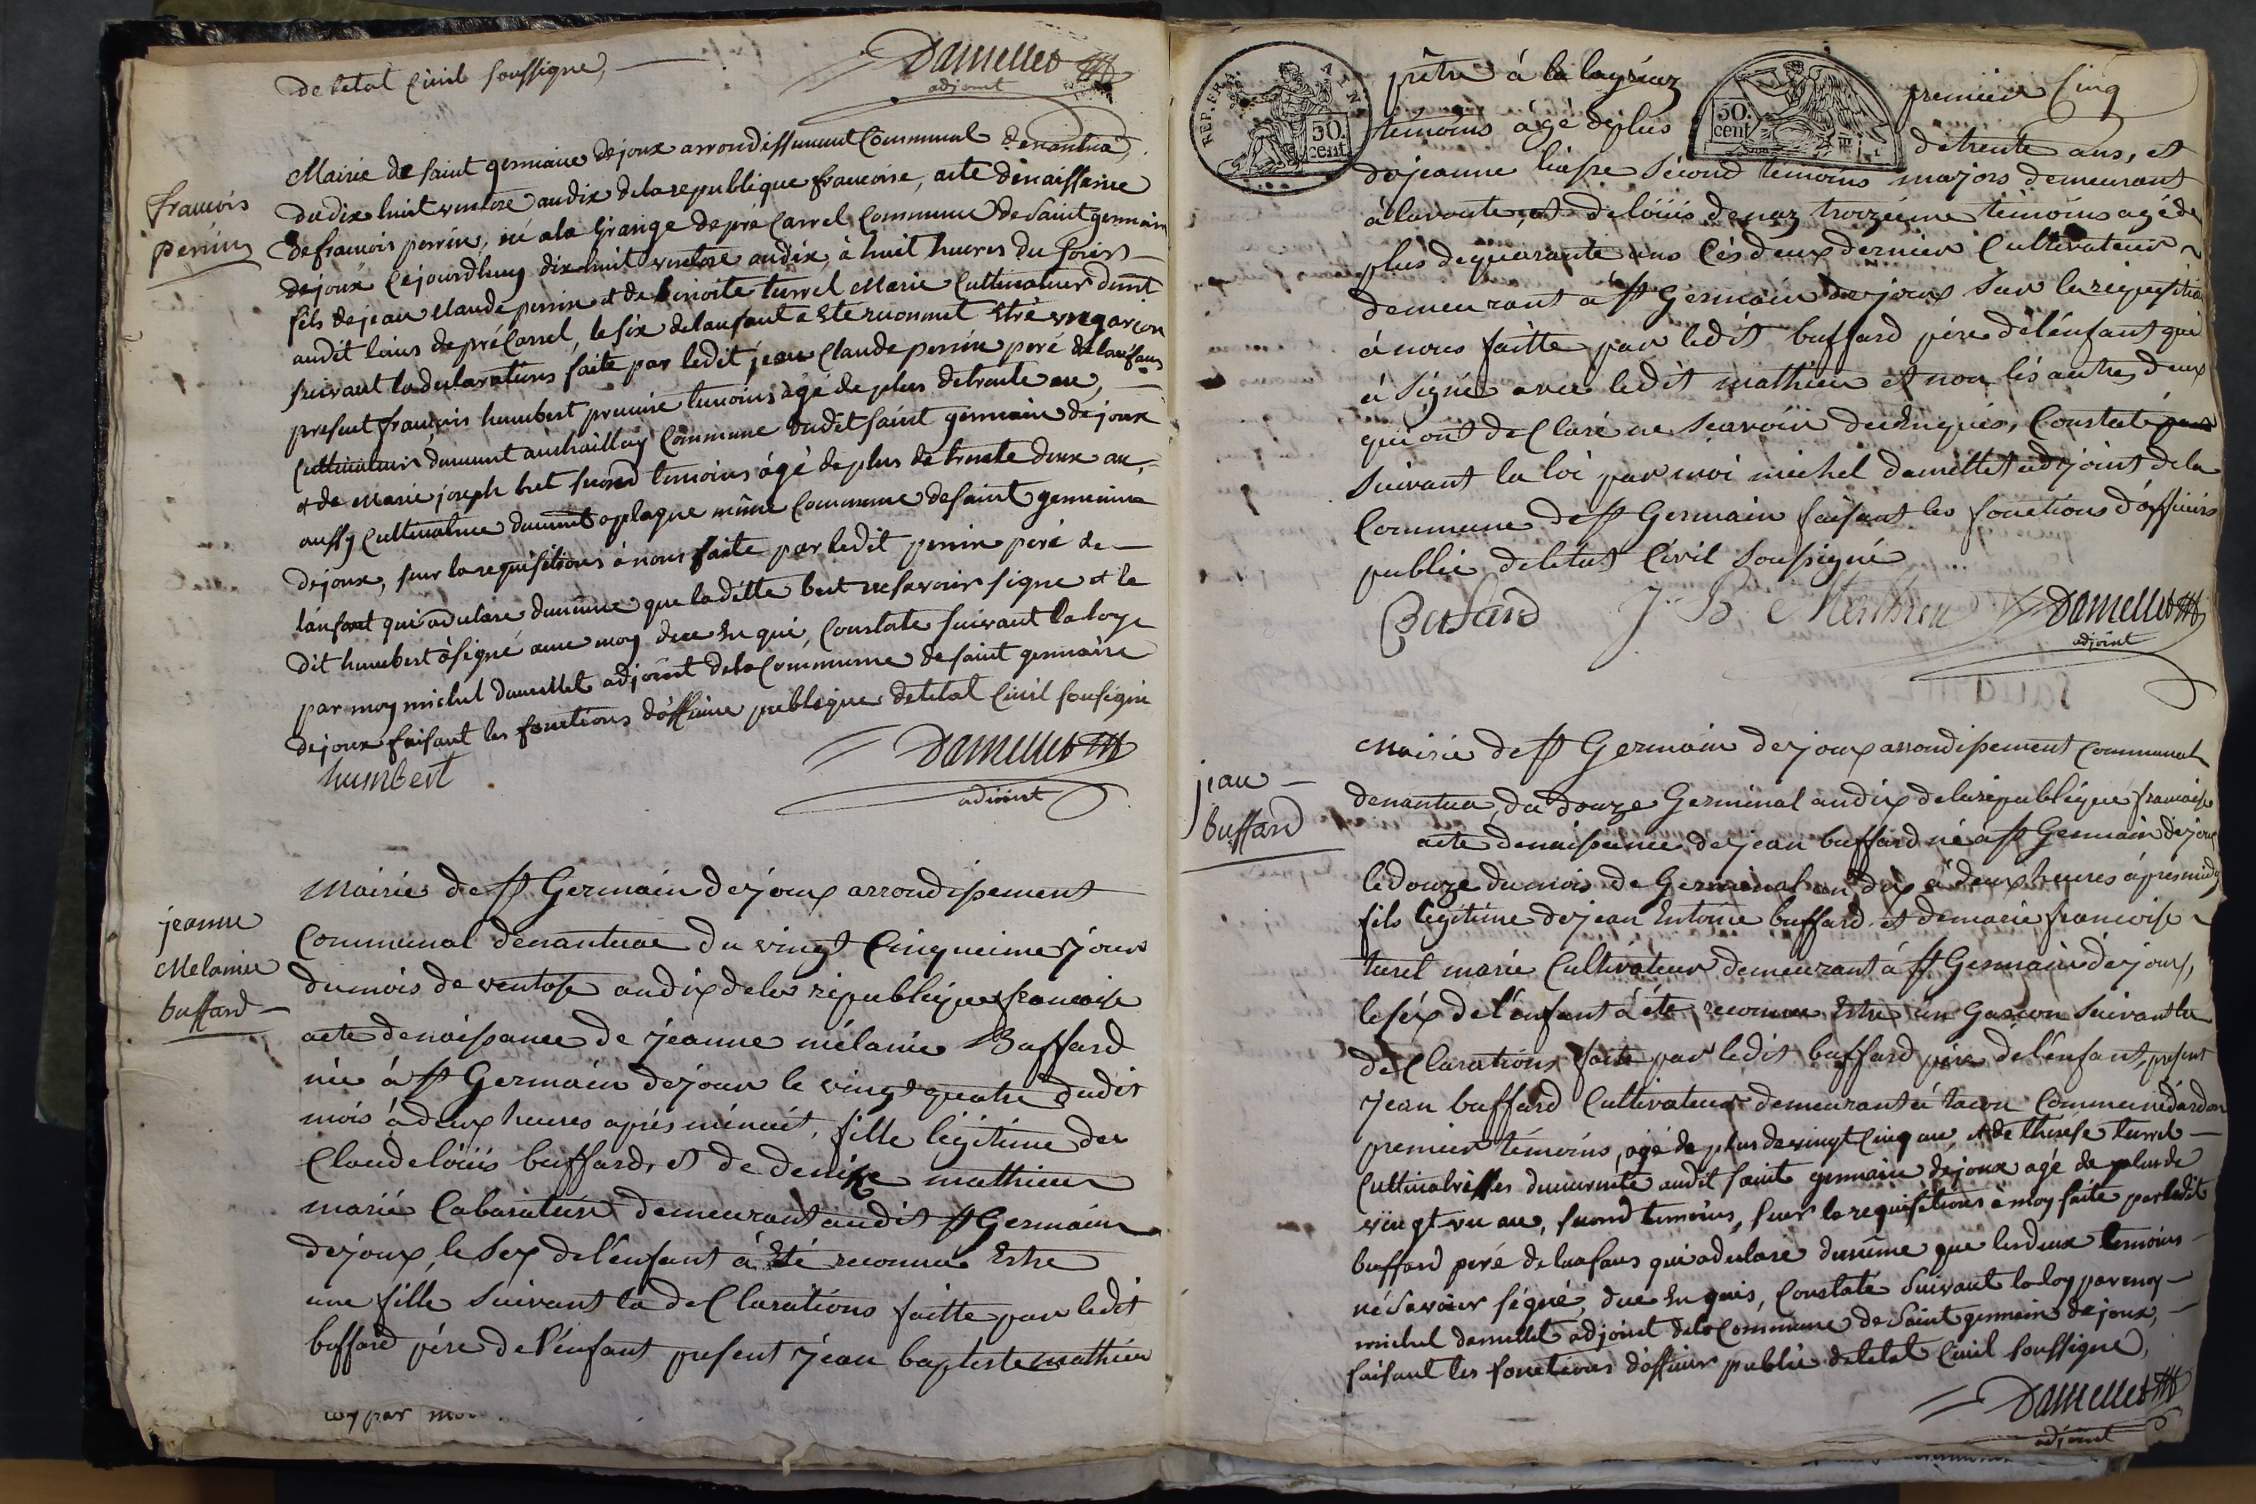 de letat Civil soussigne,
Damellet
adjoint
francois
perrin
Mairie de saint germain dejoux arrondissement Communal denantua,
du dix huit ventose an dix dela republique francoise, acte denaissance
de francois perrin, né a la Grange de pré Carrel Commune de Saint germain
dejoux cejourdhuy dix huit ventose an dix, à huit heures du soirs
fils de jean claude perrin et de benoite turrel Marié Cultivateur dumt
audit lieus de pré Carrel, le six delanfant a este reconnut Estre un garcon
suivant la declarations faite par ledit jean Claude perrin peré delanfans
present francois humbert premire temoins agé de plus detrante an,
Cultivateur dumeurt au chaillay Commune dudit saint germain dejoux
et de Marie joseph bret second temoins àgé de plus de trante deux an,
aussy Cultivatrice dumeurt oplagne même Commune de saint germain
dejoux, sur la requisitions a nous faite par ledit perrin peré de
lanfant qui a declare dumême que la ditte bret ne savoir signe et le
dit humbert à signé avec moy dece Enqui, Constate suivant la loye
par moy michel damellet adjoint dela Commune de saint germain
dejoux faisant les fonctions d'officier publique de letat Civil sousigne
humbert
Damellet
adjoint
jeanne
Melanie
buffard
Mairie de St Germain dejoux arrondissement
Communal denantua du vingt Cinquieme jour
dumois de ventose an dix de la république francoise
acte denaissance de jeanne mélanie Buffard
née à St Germain dejoux le vingt quatre dudit
mois à deux heures aprés minuit, fille légitime de
Claude loüis buffard, et de denise mathieu
marié Cabaratier demeurant audit St Germain
dejoux, le sex de l'énfant à Eté reconnu Estre
une fille suivant la deClarations faitte par ledit
buffard pére de l'énfant présent jéan baptiste mathieu
loy par moi
REP. FRA.
50.
cent.
50.
cent.
prêtre à la layriaz premier Cinq
témoins àgé deplus de trente ans, et
de jeanne liasse sécond témoins majors demeurant
à lavoute, et de loüis denaz troizéme témoins agé de
plus de quarante ans Cés deux dernier Cultivateur
demeurant à St Germain dejoux sur la réquisition
à nous faitte par ledit buffard pére de l'énfant qui
à signé avec ledit mathieu et non lés autres deux
qui ont deClaré ne sçavoir de Enquis, Constaté
suivant la loi par moi michel damellet adjoint de la
Commune de St Germain faisant les fonctions d'officiers
public de létat Civil soussigné
Buffard J. B. Mathieu Damellet
adjoint
jean
buffard
Mairie de St Germain dejoux arrondissement Communal
denantua, du douze Germinal an dix de la république francoise
acte denaissance de jean buffard né a St Germain dejoux
le douze dumois de Germinal an dix à deux heures aprés midy
fils légitime de jean Entoine buffard et de marie francoise
turel marié Cultivateur demeurant á St Germain dejoux,
le séx de l'énfant à éte reconnu Estre un Garcon suivant la
deClarations faite par ledit buffard pére de l'énfant, present
jean buffard Cultivateur demeurant à tacon Commune dárdon
premier témoins, agé de plus de vingt Cinq an, et de therese turrel
Cultivatrisses dumurante audit saint germain dejoux agé de plus de
vingt un an, second temoins, sur la requisitions a moy faite par ledit
buffard peré de lanfans qui a declare dumême que les deux temoins
né savoir signé, dece Enquis, Constaté suivant la loy par moy
michel damellet adjoint dela Commune de Saint germain dejoux,
faisant les fonctions d'officier public de letat Civil soussigne,
Damellet
adjoint